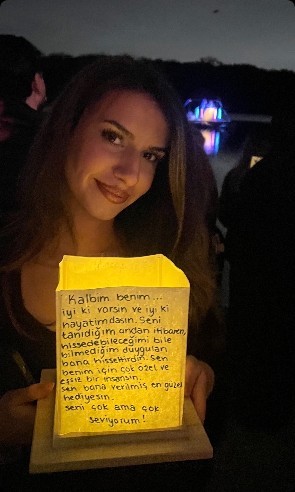 Kalbim benim...
iyi ki varsın ve iyi ki
hayatımdasın. Seni
tanıdığım andan itibaren,
hissedebileceğimi bile
bilmediğim duyguları
bana hissettirdin. Sen
benim için çok özel ve
eşsiz bir insansın.
Sen bana verilmiş en güzel
hediyesin.
Seni çok ama çok
seviyorum!